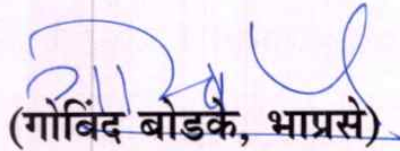 (गोबिंद बोडके, भाप्रसे)